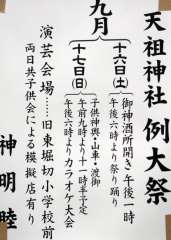 天祖神社 例大祭
九月
十六日(土)
御神酒所開き午後一時
午後六時より祭り踊り
十七日(日)
子供神輿・山車・渡御
午前九時より十一時半予定
午後六時よりカラオケ大会
演芸会場……旧東堀切小学校前
両日共子供会による模擬店有り
神明睦